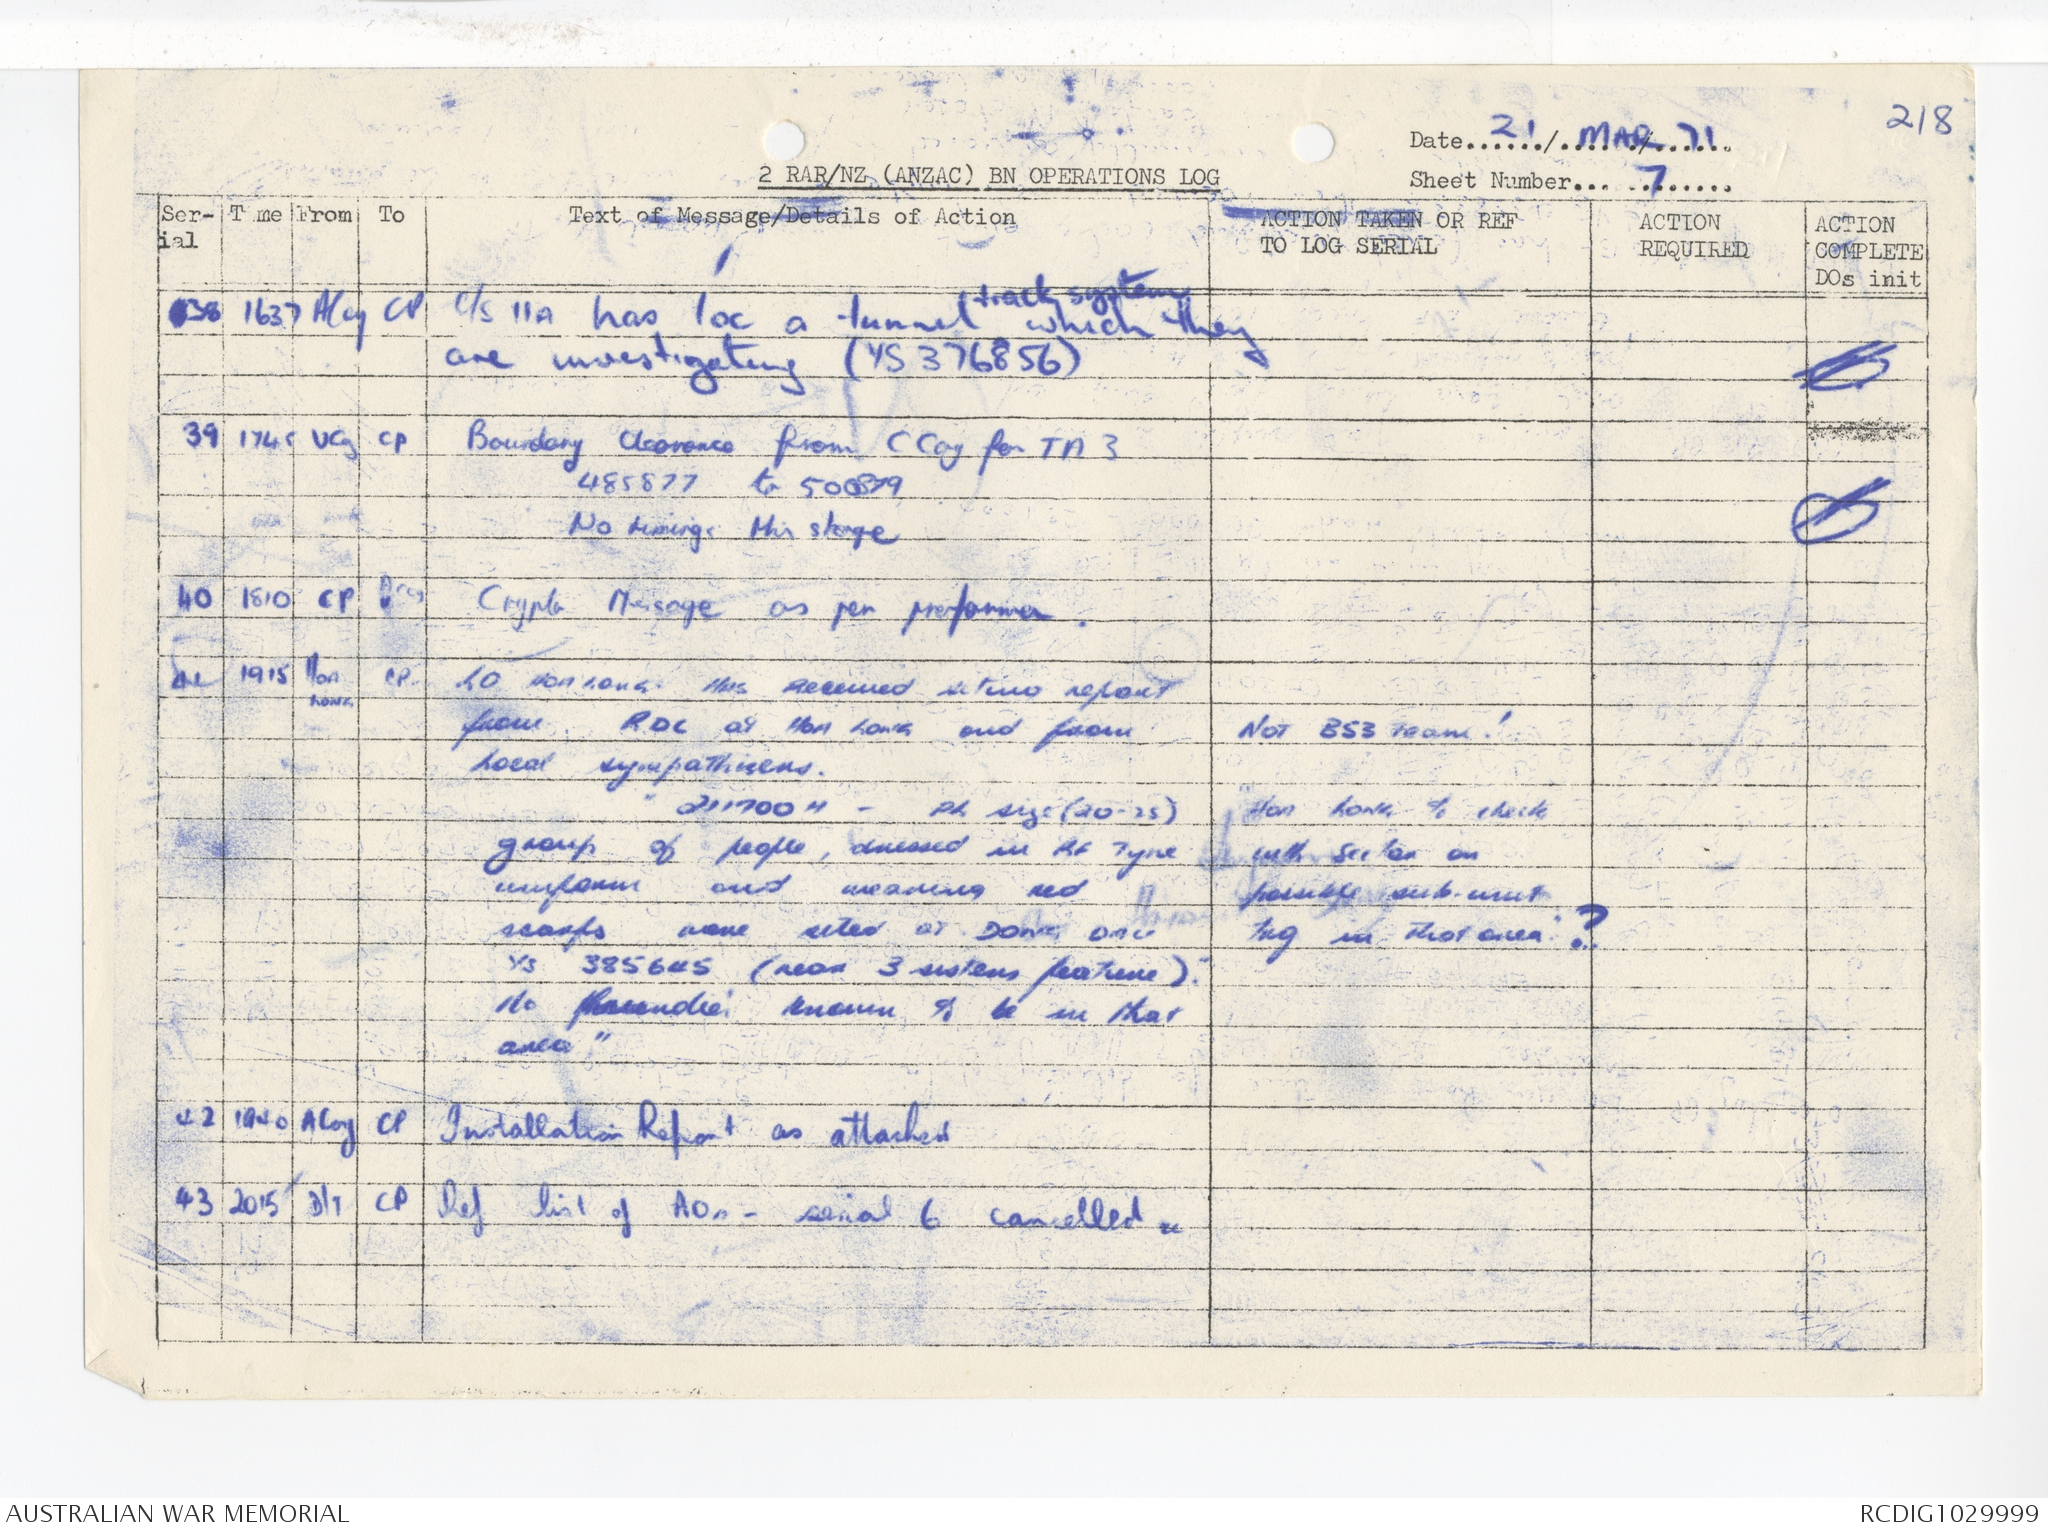 218
Date 21 / MAR / 71
2 RAR/NZ (ANZAC) BN OPERATIONS LOG
Sheet Number 7
Ser-ial Time From To Text of Message/Details of Action ACTION TAKEN OR REF TO LOG SERIAL ACTION REQUIRED ACTION COMPLETE DOs init
38 1637 A Coy CP C/S 11A has loc a tunnel track system which they
are investigating (YS 376856)
39 174 V Coy CP Boundary Clearance from C Coy for TA 3
485877 to 500879
No timings this stage
40 1810 CP Crypto Message as per proforma.
41 1915 Hoa Long CP. LO Hoa Long. Has received report
from RDC at Hoa Long and from Not BS3 Team!
Local sympathisers.
"211700H - PL size (20-25) "Hoa Long to check
group of people, dressed in RF Type with Sector on
uniform and wearing red possible sub-unit
scarfs were sited at Dong trg in that area" ?
YS 385645 (near 3 sisters feature).
No friendlies known to be in that
area"
42 1940 A Coy CP Installation Report as attached
43 2015 CP Ref list of AOs - serial 6 cancelled
AUSTRALIAN WAR MEMORIAL
RCDIG1029999